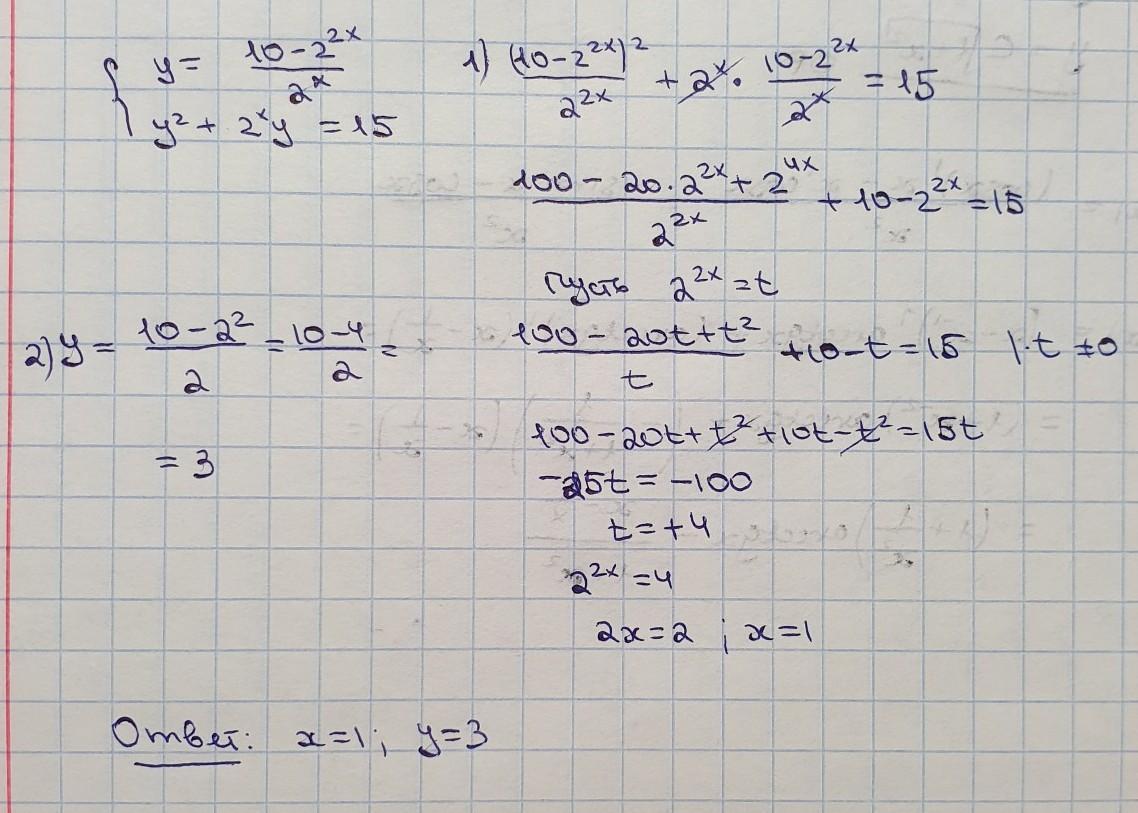 { y = (10 - 2^{2x}) / 2^x
y² + 2^x y = 15
1) (10 - 2^{2x})² / 2^{2x} + 2^x · (10 - 2^{2x}) / 2^x = 15
(100 - 20 · 2^{2x} + 2^{4x}) / 2^{2x} + 10 - 2^{2x} = 15
пусть 2^{2x} = t
(100 - 20t + t²) / t + 10 - t = 15 | · t ≠ 0
100 - 20t + t² + 10t - t² = 15t
-25t = -100
t = +4
2^{2x} = 4
2x = 2 ; x = 1
2) y = (10 - 2²) / 2 = (10 - 4) / 2 =
= 3
Ответ: x = 1; y = 3